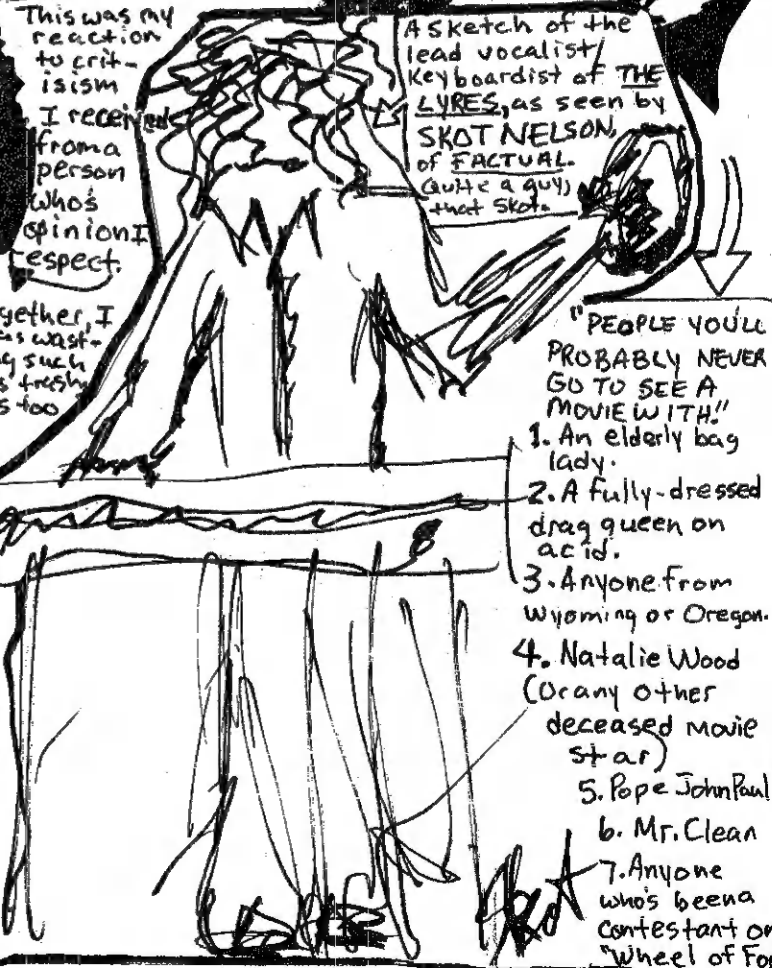 This was my
reaction
to crit-
isism
I received
from a
person
who's
opinion I
respect.
A sketch of the
lead vocalist/
Keyboardist of THE
LYRES, as seen by
SKOT NELSON,
of FACTUAL.
(quite a guy,
that Skot.
"PEOPLE YOU'LL
PROBABLY NEVER
GO TO SEE A
MOVIE WITH!"
1. An elderly bag
lady.
2. A fully-dressed
drag queen on
acid.
3. Anyone from
Wyoming or Oregon.
4. Natalie Wood
(or any other
deceased movie
star)
5. Pope John Paul
6. Mr. Clean
7. Anyone
who's been a
contestant on
"Wheel of For
gether, I
as wast-
g such
s' trashy
s too
Skot